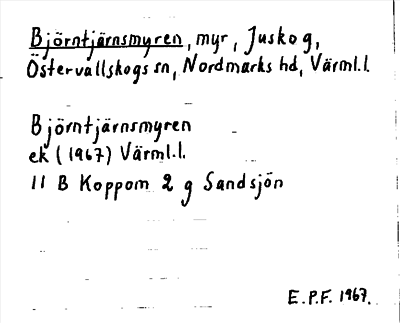 Björntjärnsmyren, myr, Juskog,
Östervallskogs sn, Nordmarks hd, Värml.l.
Björntjärnsmyren
ek (1967) Värml.l.
11 B Koppom 2 g Sandsjön
E.P.F. 1967.